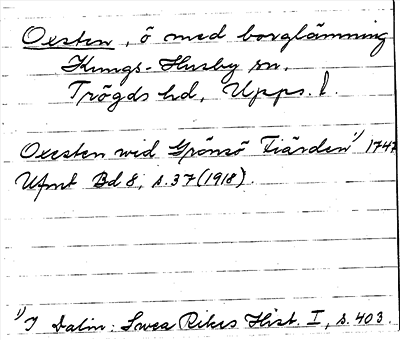 Oxsten, ö med borglämning
Kungs-Husby sn.
Trögds hd, Upps. l.
Oxesten wid Grönsö Fiärden¹) 1747
Ufmt Bd 8, s. 37 (1918).
¹) I Dalin: Svea Rikes Hist. I, s. 403.